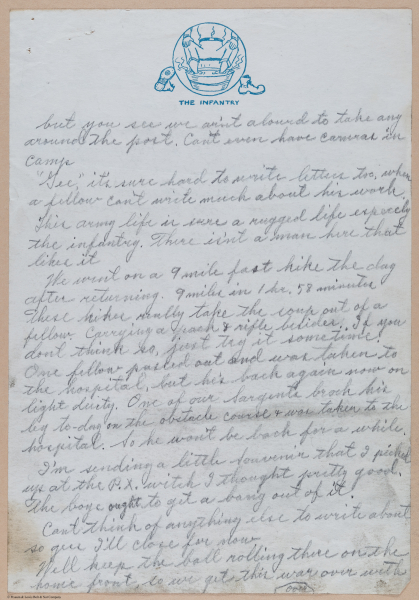 THE INFANTRY
but you see we arn't aloued to take any
around the post. Cant even have cameras in
camp
"Gee," it's sure hard to write letters too, when
a fellow cant write much about his work.
This army life is sure a rugged life especely
the infantry. There isn't a man here that
likes it
We went on a 9 mile fast hike the day
after returning. 9 miles in 1 hr. 58 minutes
These hikes really take the soup out of a
fellow. Carrying a pack & rifle besides. If you
dont think so, just try it sometime!
One fellow passed out and was taken to
the hospital, but his back again now on
light duity. One of our Sargents broek his
leg to-day on the obstacle course & was taken to the
hospital. So he won't be back for a while.
I'm sending a little souvenir that I picked
up at the P.X. witch I thought pretty good.
The boys ought to get a bang out of it.
Cant think of anything else to write about
so gess I'll close for now
Well keep the ball rolling there on the
home front, so we get this war over with